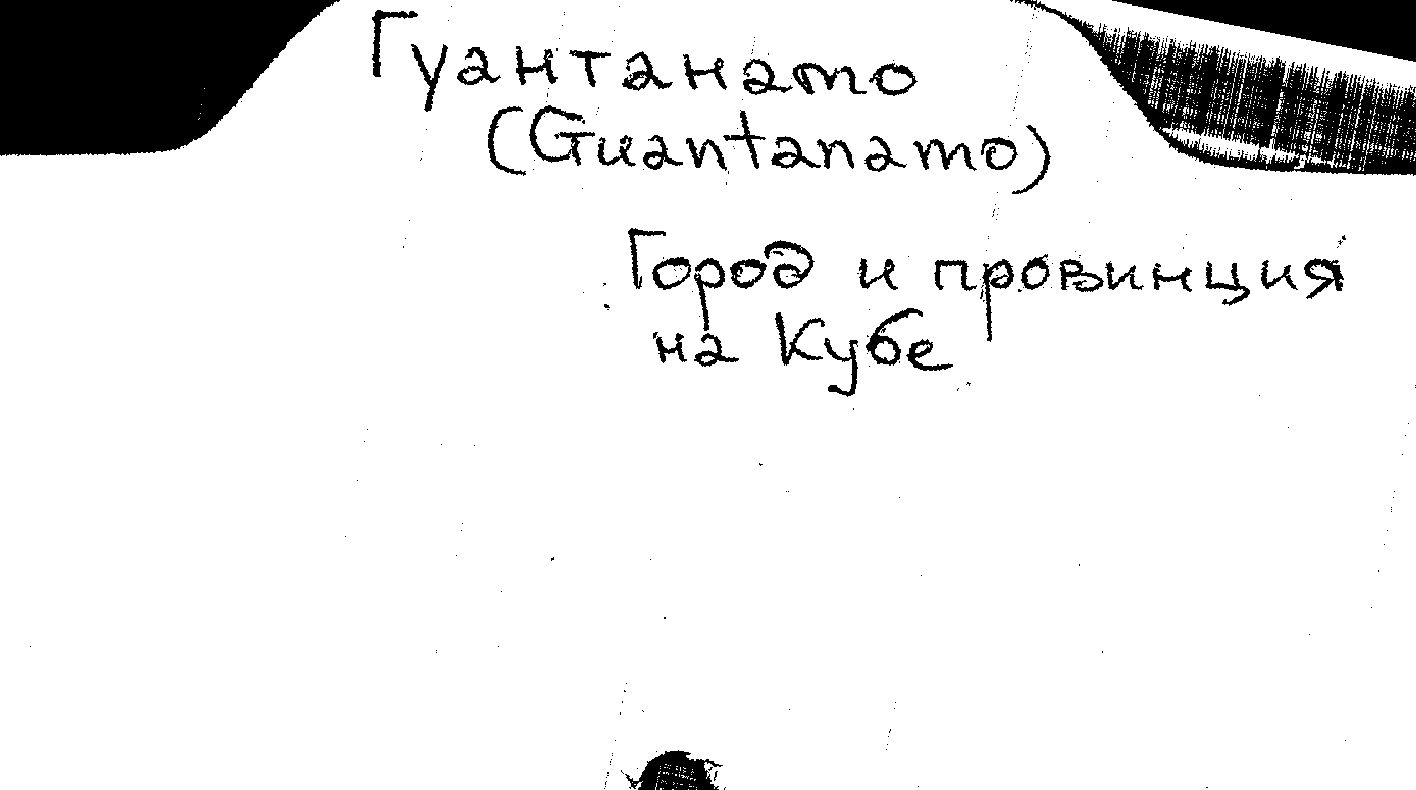 Гуантанамо
(Guantanamo)
Город и провинция
на Кубе